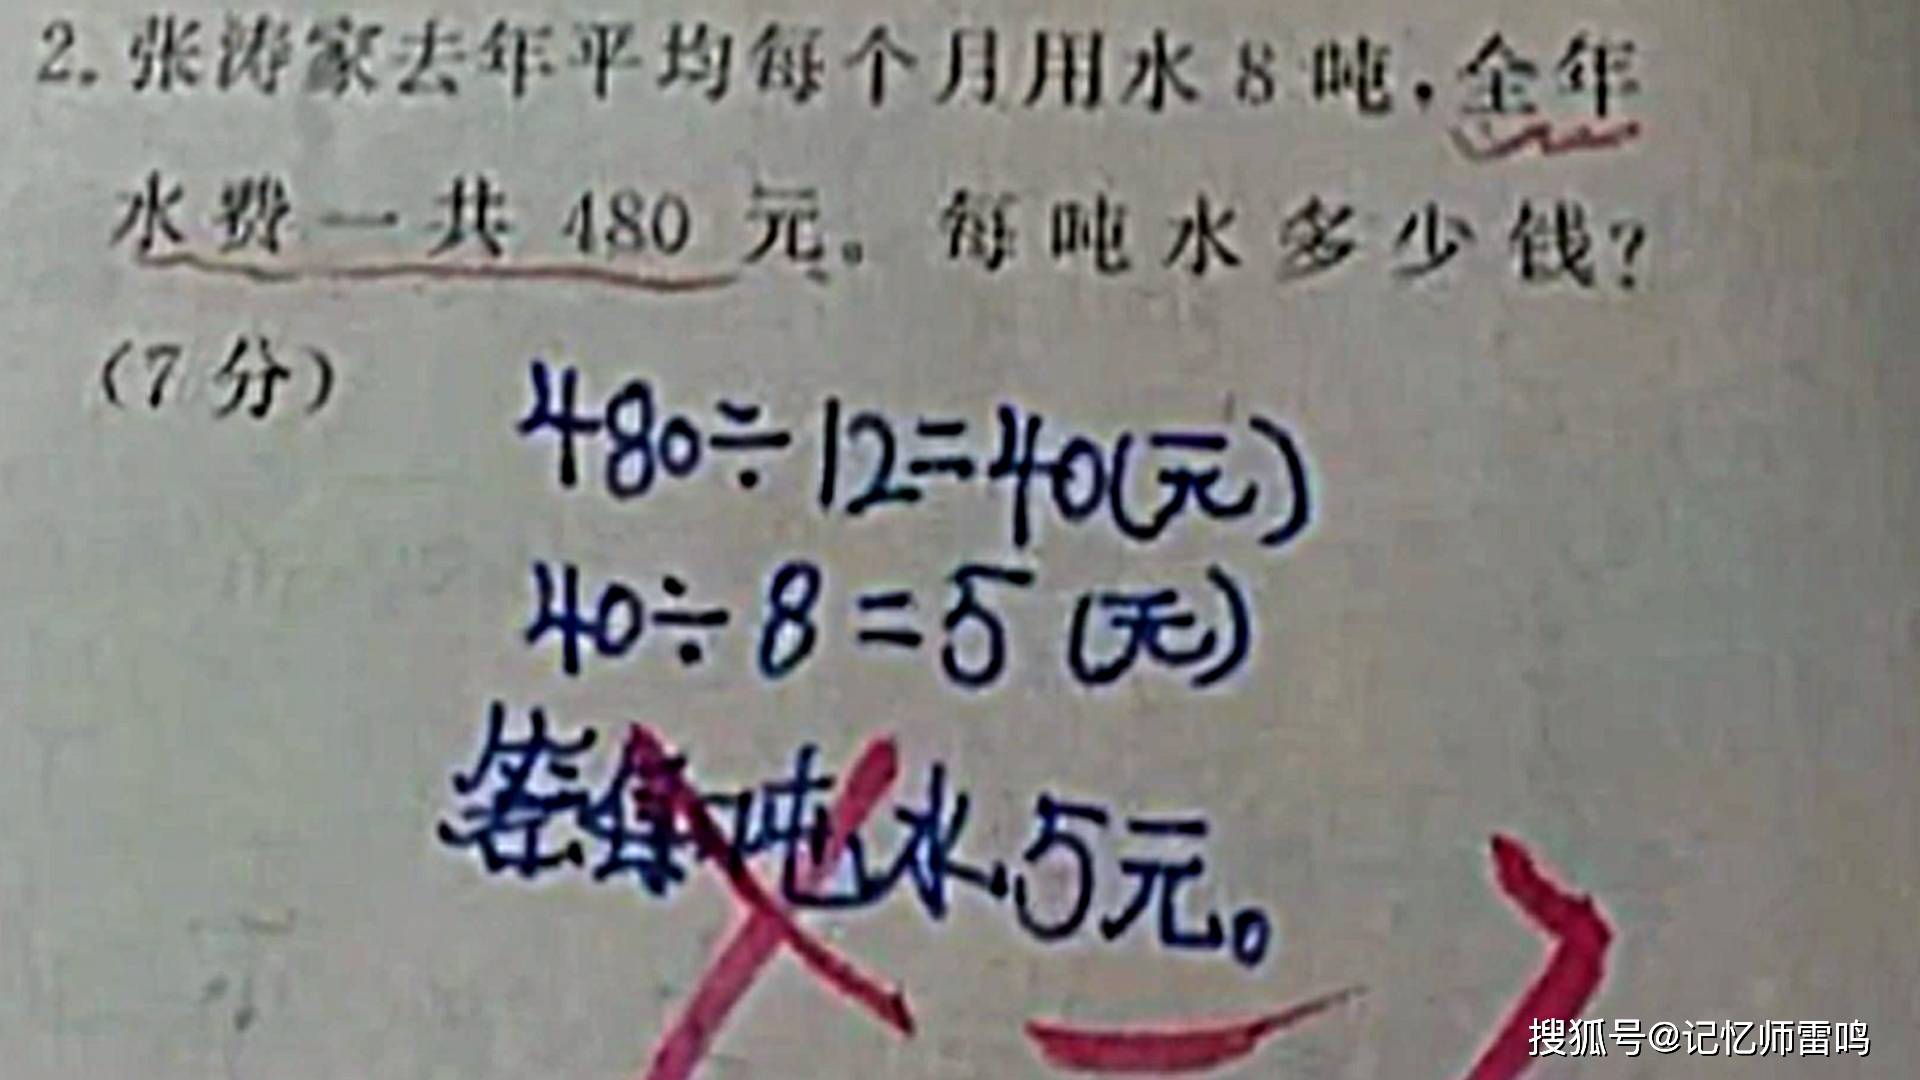 2. 张涛家去年平均每个月用水 8 吨,全年
水费一共 480 元。每吨水多少钱?
(7 分)
480÷12=40(元)
40÷8=5(元)
答:每吨水5元。
搜狐号@记忆师雷鸣